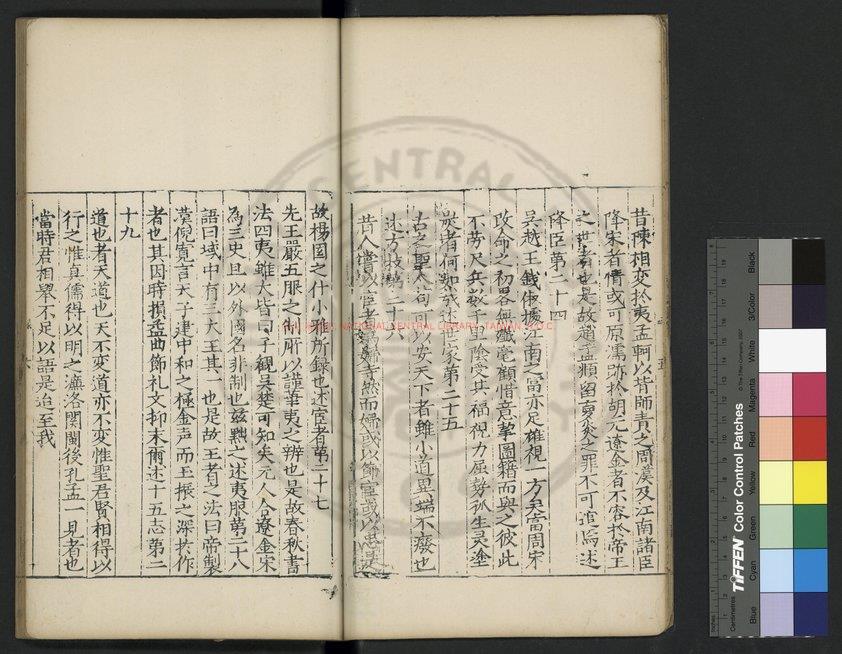 昔陳相変於夷孟軻以背師責之周漢及江南諸臣
降宋者情或可原濡跡於胡元遼金者不容於帝王
之世者也是故趙孟頫留夢炎之罪不可逭焉述
降臣第二十四
吳越王錢俶據江南之富亦足雄視一方矣當周宋
改命之初畧無纖毫顧惜意挈圖籍而與之彼此
不勞尺兵數千里陰受其福視力屈勢孤生灵塗
炭者何如哉述世家第二十五
古之聖人苟可以安天下者雖小道異端不癈也
述方技第二十六
昔人嘗以宦者為婦寺然而婦或以節宦或以忠是
故楊園之什小雅所録也述宦者第二十七
先王嚴五服之制所以謹華夷之辨也是故春秋書
法四夷雖大皆曰子観吳楚可知矣元人合遼金宋
為三史且以外國名非制也兹黜之述夷服第二十八
語曰域中有三大王其一也是故王者之法曰帝製
漢倪寛言天子建中和之極金声而玉振之深於作
者也其因時損益曲飾礼文抑末甫述十五志第二
十九
道也者天道也天不変道亦不変惟聖君賢相得以
行之惟真儒得以明之濂洛関閩後孔孟一見者也
當時君相舉不足以語是迨至我
NATIONAL CENTRAL LIBRARY, TAIWAN, R.O.C
TIFFEN Color Control Patches
© The Tiffen Company, 2007
Centimetres
Inches
Blue
Cyan
Green
Yellow
Red
Magenta
White
3/Color
Black